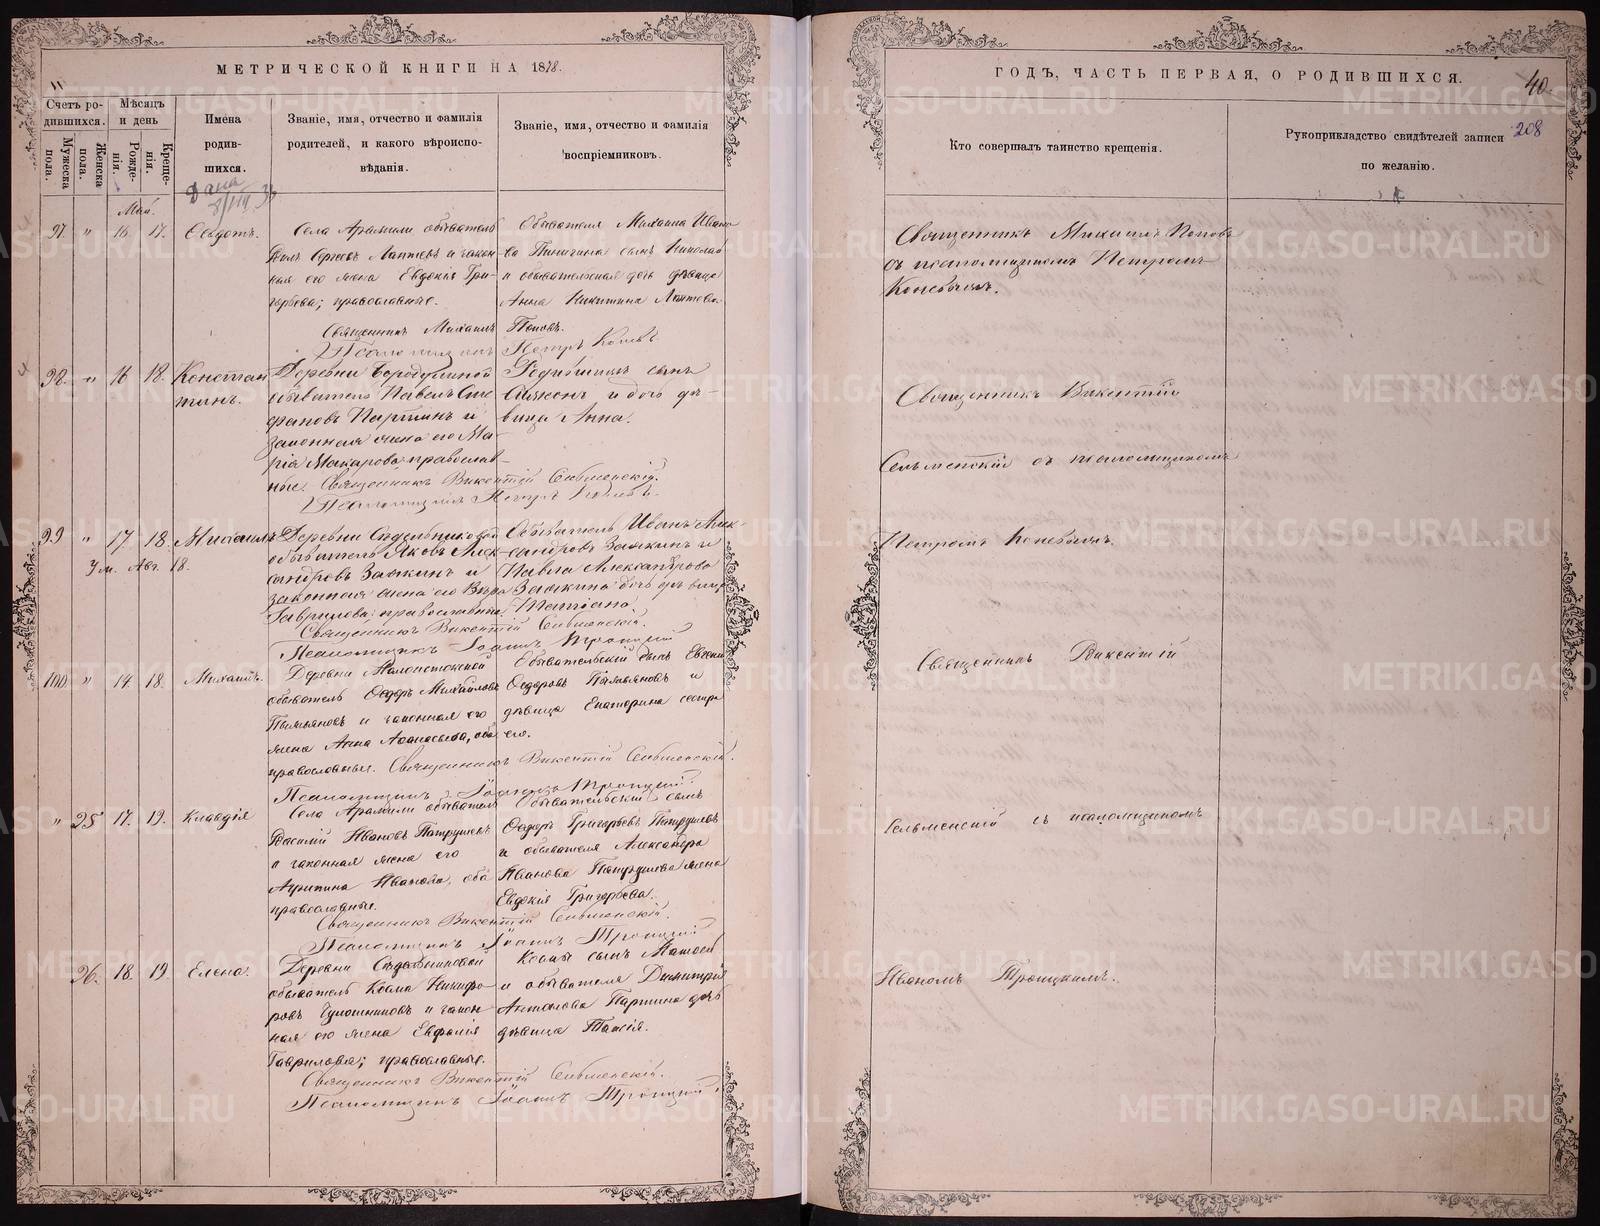 МЕТРИЧЕСКОЙ КНИГИ НА 1878.
Счетъ родившихся.
Мужеска пола.
Женска пола.
Мѣсяцъ и день
Рожденія.
Крещенія.
Имена родившихся.
Званіе, имя, отчество и фамилія родителей, и какого вѣроисповѣданія.
Званіе, имя, отчество и фамилія воспріемниковъ.
Дана
Май.
97. " 16. 17. Ѳедотъ.
Села Арамили обыватель
Лаптевъ и закон-
ная его жена Евдокія Гри-
горьева; православные.
Обывателя Михаила Ивано
ва сынъ Николай
и обывательская дочь дѣвица
Анна Никитина Лаптева.
Священникъ Михаилъ Поповъ.
Псаломщикъ Петръ
98. " 16 18. Констан
тинъ.
Деревни Бородулиной
обыватель Павелъ Сте
фановъ Партинъ и
законная жена его Ма-
рія Макарова православ-
ные.
Родившихъ сынъ
и дочь дѣ-
вица Анна.
Священникъ Викентій Сельменскій.
Псаломщикъ Петръ
99 " 17. 18. Михаилъ
Ум. Авг. 18.
Деревни Сѣдельниковой
обыватель Яковъ Алек-
сандровъ Заякинъ и
законная жена его Вѣра
Гаврилова; православные
Обыватель Иванъ Алек
сандровъ Заякинъ и
Павла Александрова
Заякина дочь дѣвица
Татіана.
Священникъ Викентій Сельменскій.
Псаломщикъ Іоаннъ Троицкій
100. " 14. 18. Михаилъ.
Деревни
обыватель Ѳедоръ Михайловъ
и законная его
жена Анна Аѳанасьева, оба
православные.
Обывательскій сынъ Евгеній
Ѳедоровъ и
дѣвица Екатерина сестра
его.
Священникъ Викентій Сельменскій.
Псаломщикъ Іоаннъ Троицкій.
" 25 17. 19. Клавдія
Села Арамили обыватель
Василій Ивановъ Патрушевъ
и законная жена его
Агрипина Иванова, оба
православные.
Обывательскій сынъ
Ѳедоръ Григорьевъ Патрушевъ
и обывателя Александра
Иванова Патрушева жена
Евдокія Григорьева.
Священникъ Викентій Сельменскій.
Псаломщикъ Іоаннъ Троицкій
26. 18. 19. Елена.
Деревни Сѣдельниковой
обыватель Косма Никифо-
ровъ и закон-
ная его жена Евфалія
Гаврилова; православные.
Космы сынъ Матвей
и обывателя Димитрія
Партина дочь
дѣвица Таисія.
Священникъ Викентій Сельменскій.
Псаломщикъ Іоаннъ Троицкій.
ГОДЪ, ЧАСТЬ ПЕРВАЯ, О РОДИВШИХСЯ.
40.
208
Кто совершалъ таинство крещенія.
Рукоприкладство свидѣтелей записи
по желанію.
Священникъ Михаилъ Поповъ
съ псаломщикомъ Петромъ
Священникъ Викентій
Сельменскій съ псаломщикомъ
Петромъ
Священникъ Викентій
Сельменскій съ псаломщикомъ
Иваномъ Троицкимъ.
METRIKI.GASO-URAL.RU